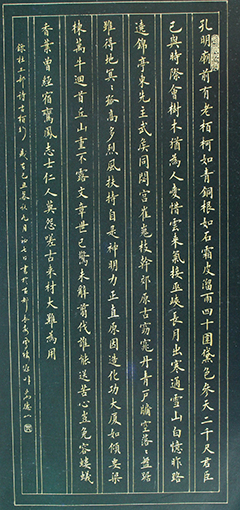 孔明廟前有老柏柯如青銅根如石霜皮溜雨四十圍黛色參天二千尺君臣
已與時際會樹木猶為人愛惜雲來氣接巫峽長月出寒通雪山白憶昨路
遶錦亭東先主武侯同閟宮崔嵬枝幹郊原古窈窕丹青戶牖空落〻盤踞
雖得地冥〻孤高多烈風扶持自是神明力正直原因造化功大廈如傾要梁
棟萬牛迴首丘山重不露文章世已驚未辭翦伐誰能送苦心豈免容螻蟻
香葉曾經宿鸞鳳志士仁人莫怨嗟古來材大難為用
錄杜工部詩古柏行 己丑暮秋九月初七日書於古都長安